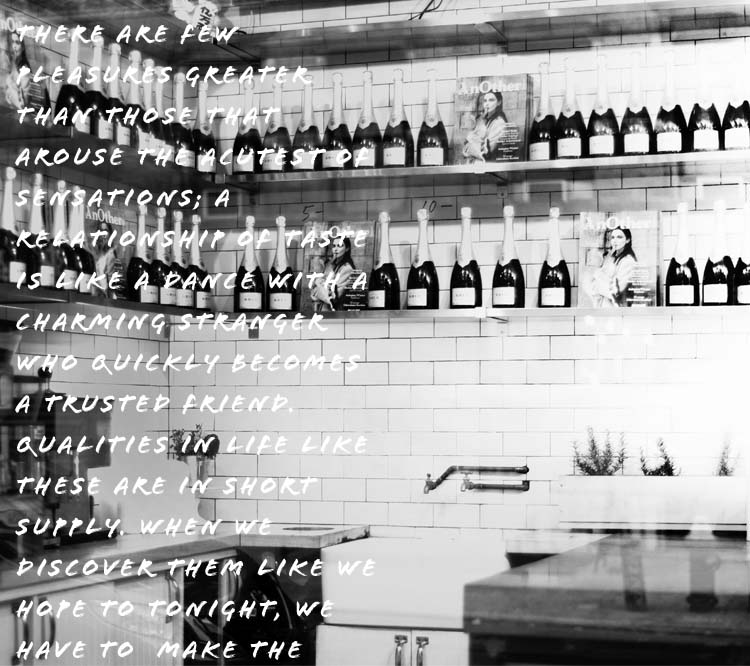 THERE ARE FEW
PLEASURES GREATER
THAN THOSE THAT
AROUSE THE ACUTEST OF
SENSATIONS; A
RELATIONSHIP OF TASTE
IS LIKE A DANCE WITH A
CHARMING STRANGER
WHO QUICKLY BECOMES
A TRUSTED FRIEND.
QUALITIES IN LIFE LIKE
THESE ARE IN SHORT
SUPPLY. WHEN WE
DISCOVER THEM LIKE WE
HOPE TO TONIGHT, WE
HAVE TO MAKE THE
AnOther
AnOther
AnOther
AnOther
10-